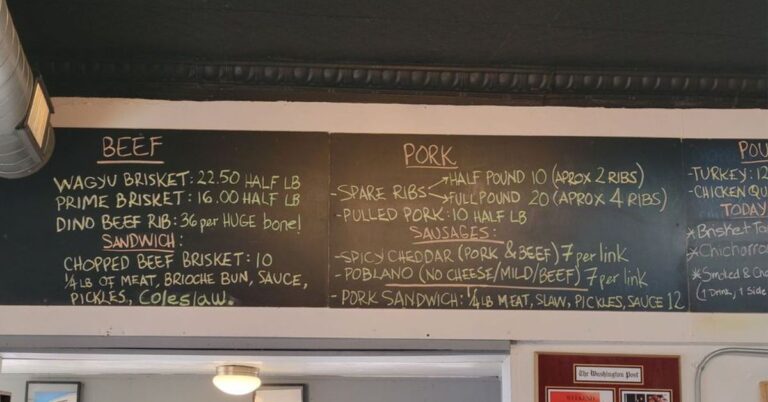 BEEF
WAGYU BRISKET: 22.50 HALF LB
PRIME BRISKET: 16.00 HALF LB
DINO BEEF RIB: 36 per HUGE bone!
SANDWICH:
CHOPPED BEEF BRISKET: 10
1/4 LB OF MEAT, BRIOCHE BUN, SAUCE,
PICKLES, Coleslaw.
PORK
-SPARE RIBS
HALF POUND 10 (APROX 2 RIBS)
FULL POUND 20 (APROX 4 RIBS)
-PULLED PORK: 10 HALF LB
SAUSAGES:
-SPICY CHEDDAR (PORK & BEEF) 7 per link
-POBLANO (NO CHEESE/MILD/BEEF) 7 per link
- PORK SANDWICH: 1/4 LB MEAT, SLAW, PICKLES, SAUCE 12
POU
-TURKEY: 12
-CHICKEN QU
TODAY
*Brisket Ta
*Chicharro
*Smoked & Ch
(1 Drink, 1 Side
The Washington Post
WEEKEND